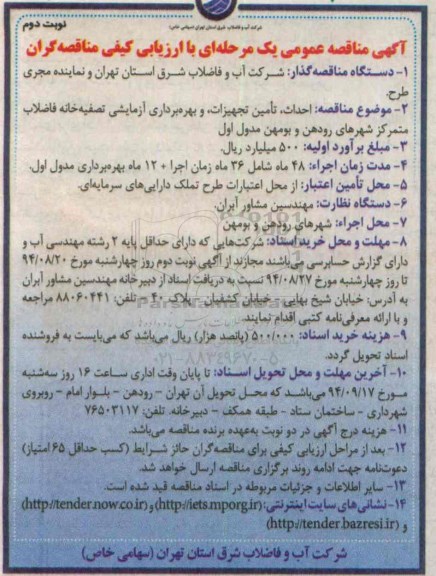 شرکت آب و فاضلاب شرق استان تهران (سهامی خاص)
نوبت دوم
آگهی مناقصه عمومی یک مرحله‌ای با ارزیابی کیفی مناقصه‌گران
۱- دستگاه مناقصه‌گذار: شرکت آب و فاضلاب شرق استان تهران و نماینده مجری
طرح.
۲- موضوع مناقصه: احداث، تأمین تجهیزات، و بهره‌برداری آزمایشی تصفیه‌خانه فاضلاب
متمرکز شهرهای رودهن و بومهن مدول اول
۳- مبلغ برآورد اولیه: ۵۰۰ میلیارد ریال.
۴- مدت زمان اجراء: ۴۸ ماه شامل ۳۶ ماه زمان اجرا + ۱۲ ماه بهره‌برداری مدول اول.
۵- محل تأمین اعتبار: از محل اعتبارات طرح تملک دارایی‌های سرمایه‌ای.
۶- دستگاه نظارت: مهندسین مشاور آیران.
۷- محل اجراء: شهرهای رودهن و بومهن
۸- مهلت و محل خرید اسناد: شرکت‌هایی که دارای حداقل پایه ۲ رشته مهندسی آب و
دارای گزارش حسابرسی می‌باشند مجازند از آگهی نوبت دوم روز چهارشنبه مورخ ۹۴/۰۸/۲۰
تا روز چهارشنبه مورخ ۹۴/۰۸/۲۷ نسبت به دریافت اسناد از دبیرخانه مهندسین مشاور آیران
به آدرس: خیابان شیخ بهایی - خیابان کشفیان - پلاک ۴۰ - تلفن: ۸۸۰۶۰۴۴۱ مراجعه
و با ارائه معرفی‌نامه کتبی اقدام نمایند.
۹- هزینه خرید اسناد: ۵۰۰/۰۰۰ (پانصد هزار) ریال می‌باشد که می‌بایست به فروشنده
اسناد تحویل گردد.
۰۲۱-۸۸۳۴۹۶۷۰-۵
۱۰- آخرین مهلت و محل تحویل اسناد: تا پایان وقت اداری ساعت ۱۶ روز سه‌شنبه
مورخ ۹۴/۰۹/۱۷ می‌باشد که محل تحویل آن تهران - رودهن - بلوار امام - روبروی
شهرداری - ساختمان ستاد - طبقه همکف - دبیرخانه. تلفن: ۷۶۵۰۳۱۱۷
۱۱- هزینه درج آگهی در دو نوبت به‌عهده برنده مناقصه می‌باشد.
۱۲- بعد از مراحل ارزیابی کیفی برای مناقصه‌گران حائز شرایط (کسب حداقل ۶۵ امتیاز)
دعوت‌نامه جهت ادامه روند برگزاری مناقصه ارسال خواهد شد.
۱۳- سایر اطلاعات و جزئیات مربوطه در اسناد مناقصه قید شده است.
۱۴- نشانی‌های سایت اینترنتی: (http://iets.mporg.ir) و (http://tender.now.co.ir)
و (http://tender.bazresi.ir)
شرکت آب و فاضلاب شرق استان تهران (سهامی خاص)